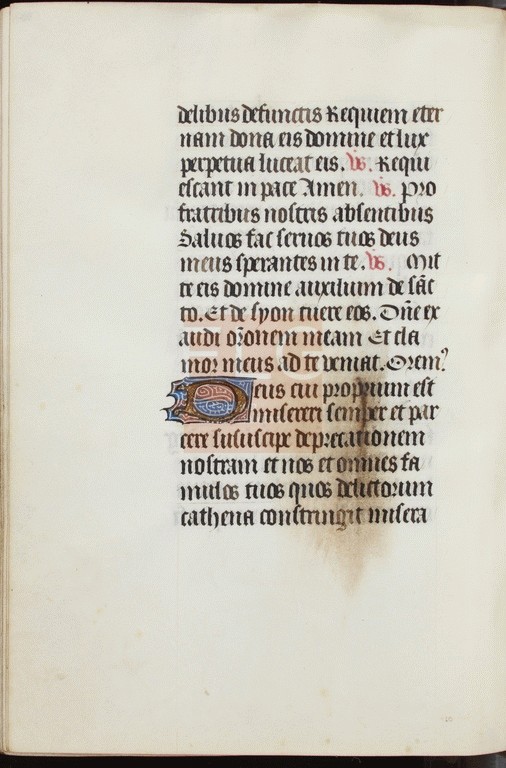 delibus defunctis Requiem eter
nam dona eis domine et lux
perpetua luceat eis. vs. Requi
escant in pace Amen. vs. Pro
fratribus nostris absentibus
Saluos fac seruos tuos deus
meus sperantes in te. vs. Mit
te eis domine auxilium de sāc
to. Et de syon tuere eos. Dñe ex
audi or̄onem meam Et cla
mor meus ad te veniat. Orem⁹
Deus cui proprium est
misereri semper et par
cere sususcipe deprecationem
nostram et nos et omnes fa
mulos tuos quos delictorum
cathena constringit misera